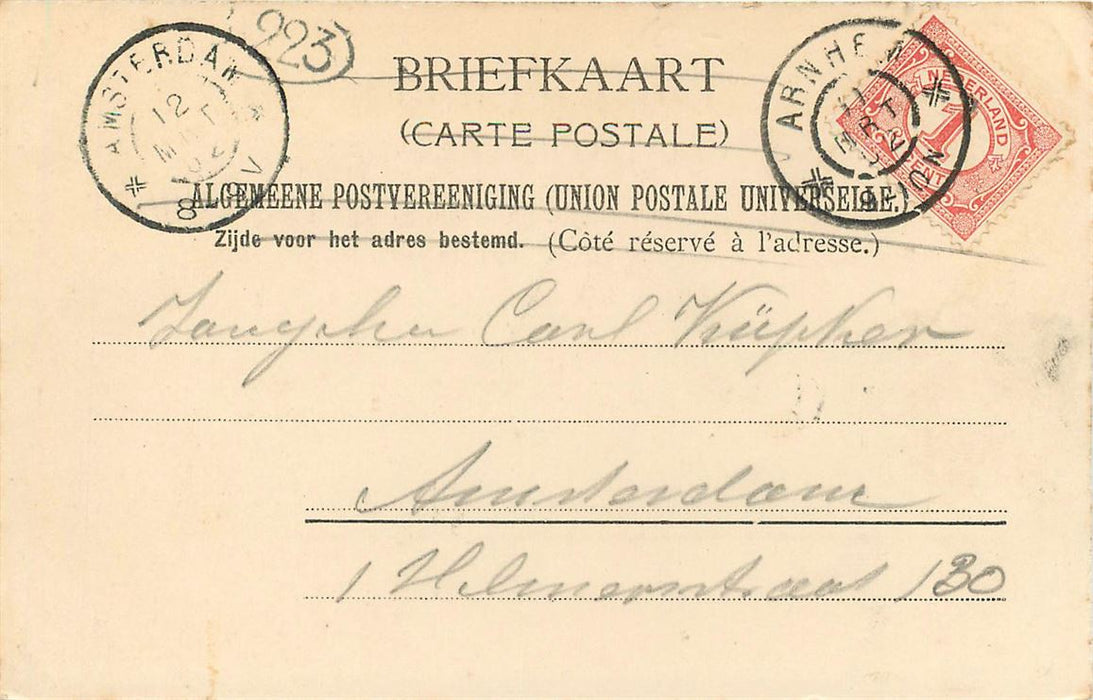 223
BRIEFKAART
(CARTE POSTALE)
ALGEMEENE POSTVEREENIGING (UNION POSTALE UNIVERSELLE.)
Zijde voor het adres bestemd. (Côté réservé à l'adresse.)
AMSTERDAM
12
MRT
02
8 V
ARNHEM
11
MRT
02
NEDERLAND
1
CENT
Carl Küpker
Amsterdam
1 Helmerstraat 130